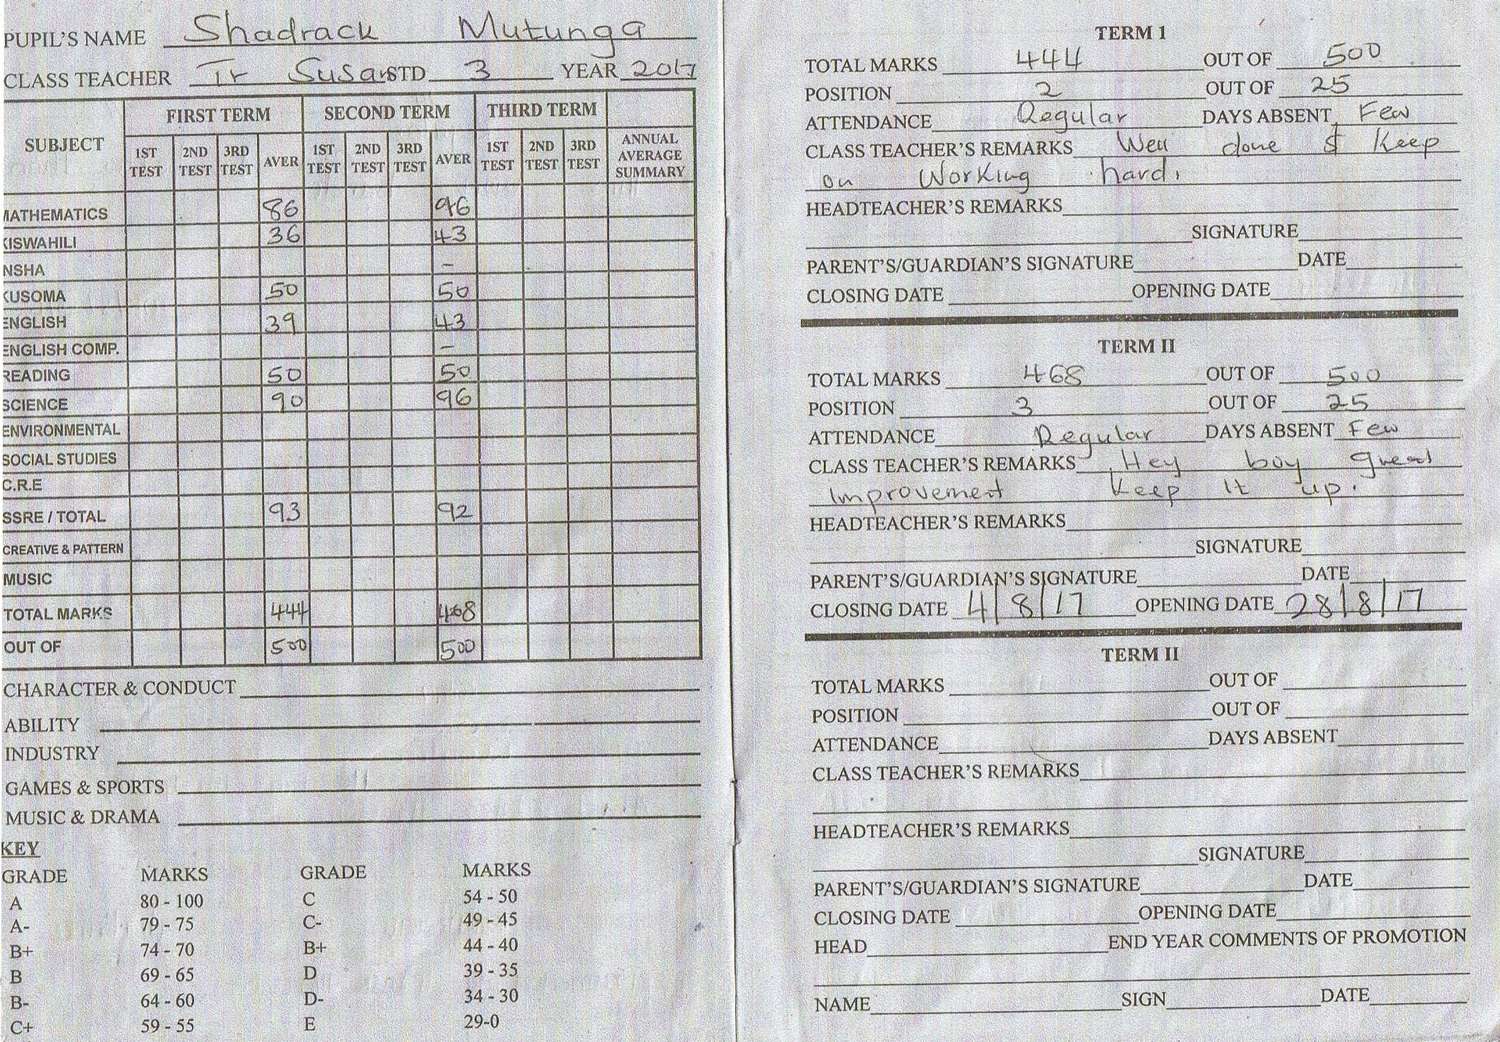 PUPIL'S NAME Shadrack Mutunga
CLASS TEACHER Tr Susan STD 3 YEAR 2017
SUBJECT FIRST TERM SECOND TERM THIRD TERM
1ST TEST 2ND TEST 3RD TEST AVER 1ST TEST 2ND TEST 3RD TEST AVER 1ST TEST 2ND TEST 3RD TEST ANNUAL AVERAGE SUMMARY
MATHEMATICS 86 96
KISWAHILI 36 43
INSHA –
KUSOMA 50 50
ENGLISH 39 43
ENGLISH COMP. –
READING 50 50
SCIENCE 90 96
ENVIRONMENTAL
SOCIAL STUDIES
C.R.E
SSRE / TOTAL 93 92
CREATIVE & PATTERN
MUSIC
TOTAL MARKS 444 468
OUT OF 500 500
CHARACTER & CONDUCT
ABILITY
INDUSTRY
GAMES & SPORTS
MUSIC & DRAMA
KEY
GRADE MARKS GRADE MARKS
A 80 - 100 C 54 - 50
A- 79 - 75 C- 49 - 45
B+ 74 - 70 B+ 44 - 40
B 69 - 65 D 39 - 35
B- 64 - 60 D- 34 - 30
C+ 59 - 55 E 29-0
TERM 1
TOTAL MARKS 444 OUT OF 500
POSITION 2 OUT OF 25
ATTENDANCE Regular DAYS ABSENT Few
CLASS TEACHER'S REMARKS Well done & Keep
on Working hard.
HEADTEACHER'S REMARKS
SIGNATURE
PARENT'S/GUARDIAN'S SIGNATURE DATE
CLOSING DATE OPENING DATE
TERM II
TOTAL MARKS 468 OUT OF 500
POSITION 3 OUT OF 25
ATTENDANCE Regular DAYS ABSENT Few
CLASS TEACHER'S REMARKS Hey boy great
Improvement Keep It up.
HEADTEACHER'S REMARKS
SIGNATURE
PARENT'S/GUARDIAN'S SIGNATURE DATE
CLOSING DATE 4/8/17 OPENING DATE 28/8/17
TERM II
TOTAL MARKS OUT OF
POSITION OUT OF
ATTENDANCE DAYS ABSENT
CLASS TEACHER'S REMARKS
HEADTEACHER'S REMARKS
SIGNATURE
PARENT'S/GUARDIAN'S SIGNATURE DATE
CLOSING DATE OPENING DATE
HEAD END YEAR COMMENTS OF PROMOTION
NAME SIGN DATE